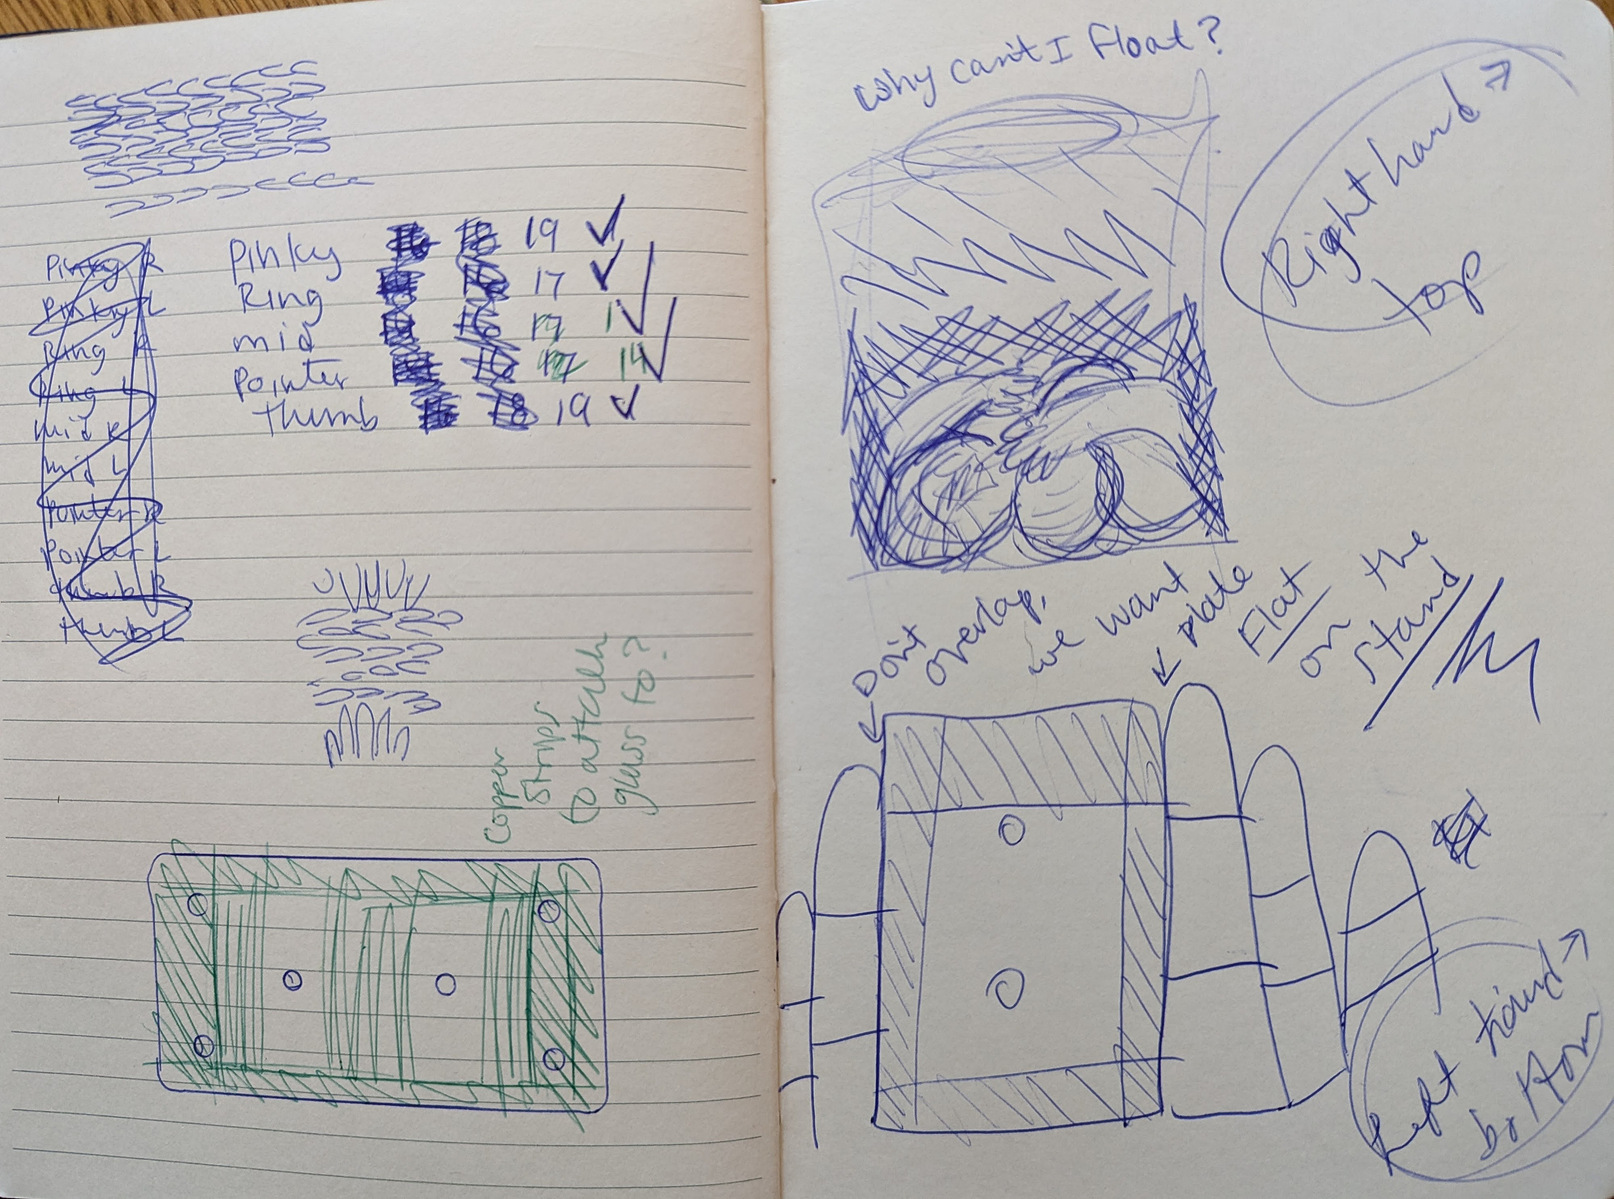 Pinky R
Pinky L
Ring R
Ring L
mid R
mid L
Pointer R
Pointer L
thumb R
thumb L
Pinky 18 19 ✓
Ring 17 ✓
mid 16 17 ✓
Pointer 14 ✓
thumb 18 19 ✓
Copper
Strips
to attach
glass to?
Why can't I Float?
Right hand →
top
← Don't
overlap,
we want
← plate
Flat
on the
stand
Left hand →
bottom